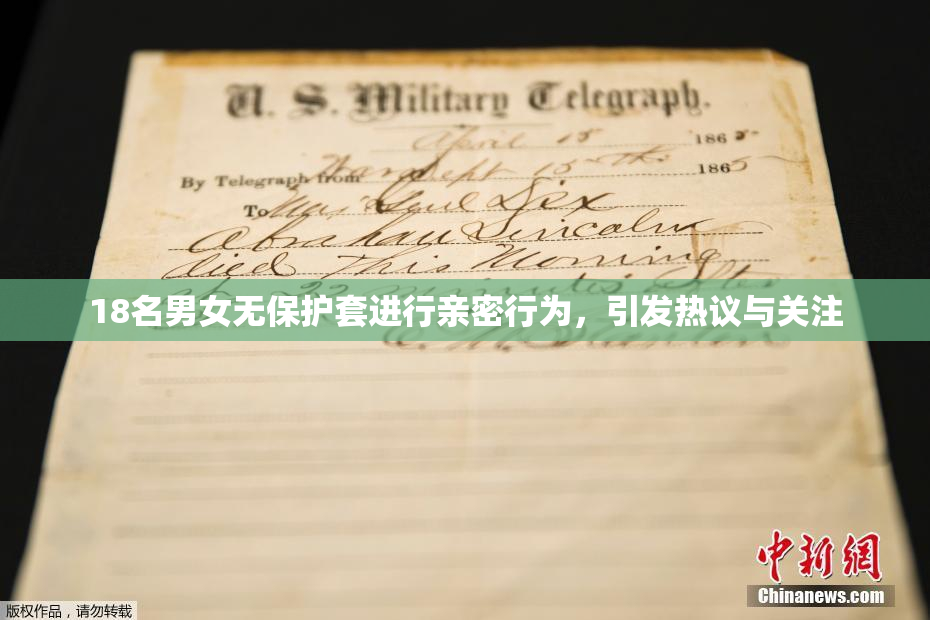 U. S. Military Telegraph.
April 15 1865
By Telegraph from War Dept 15th 1865
To Maj Genl Dix
Abraham Lincoln
died This Morning
22 minutes after
18名男女无保护套进行亲密行为，引发热议与关注
E. M. Stanton
中新网
Chinanews.com
版权作品，请勿转载